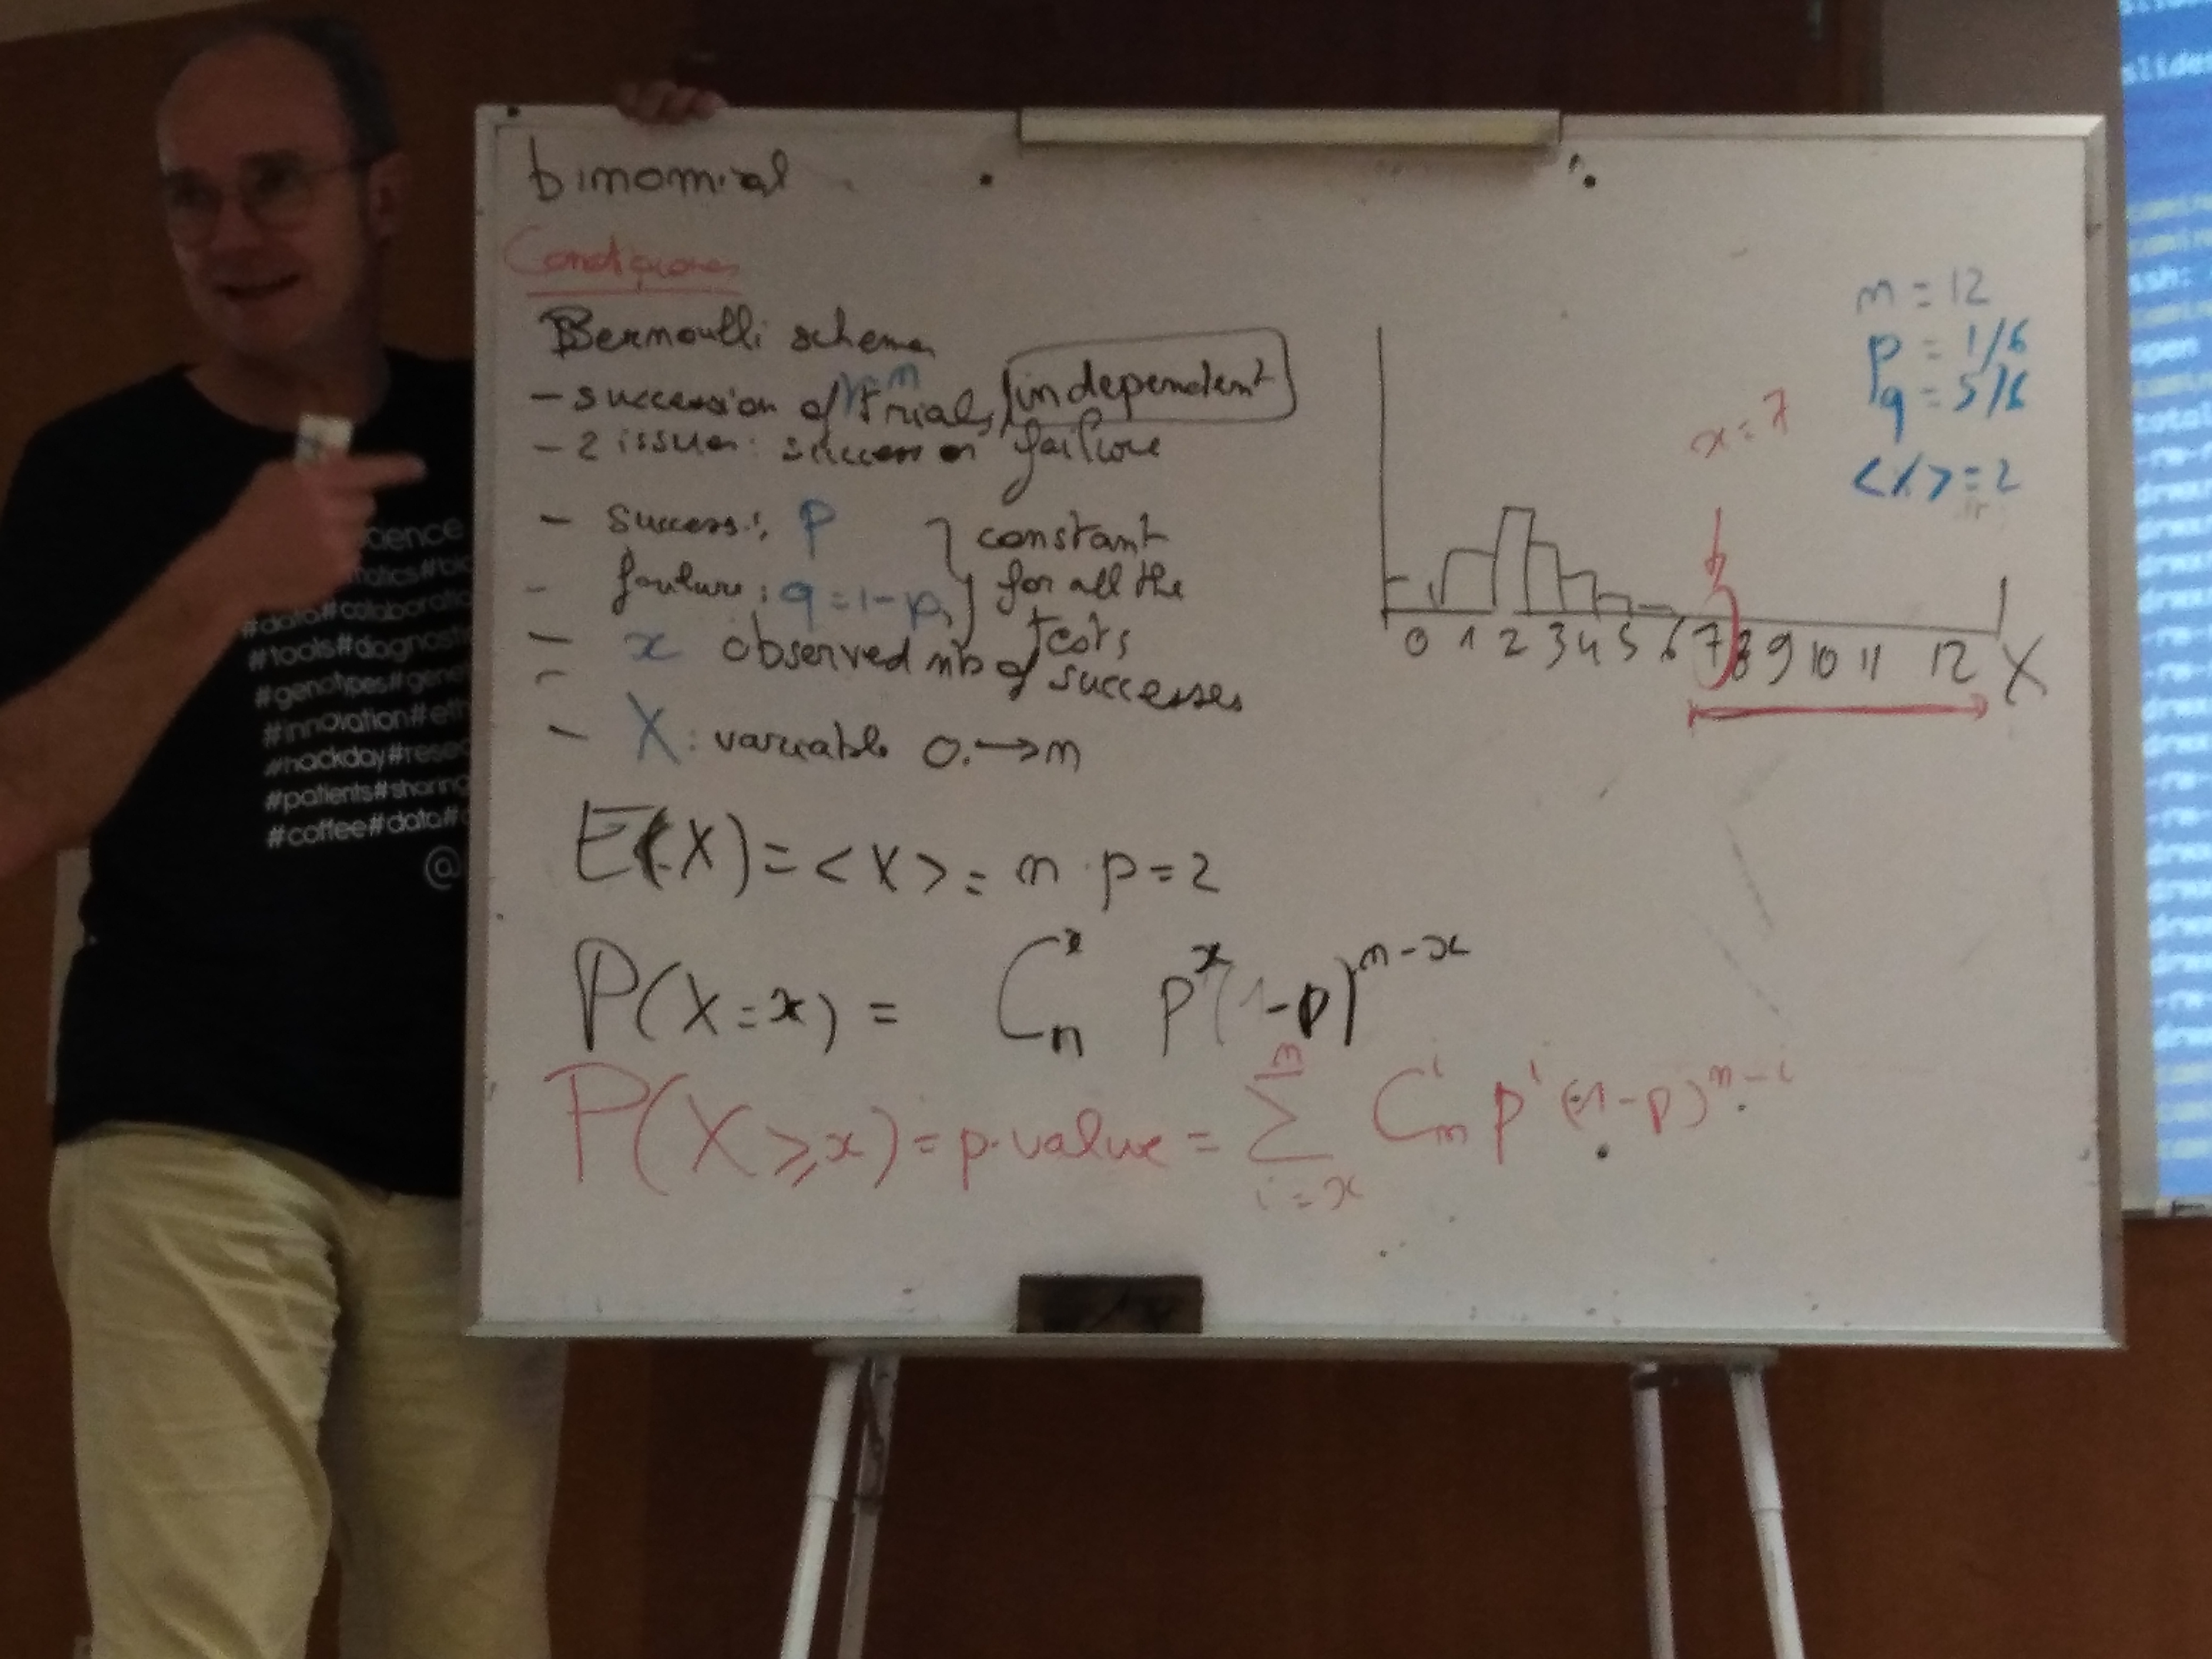 binomial
Conditions
Bernoulli schema
- succession of n trials, independent
- 2 issues: success or failure
- success: p } constant
- failure: q = 1-p } for all the tests
- x observed nb of successes
- X : variable 0 → n
E(X) = <X> = n · p = 2
P(X = x) = C_n^x p^x (1-p)^{n-x}
P(X ≥ x) = p-value = ∑_{i=x}^{n} C_n^i p^i (1-p)^{n-i}
n = 12
p = 1/6
q = 5/6
x = 7
<X> = 2
0 1 2 3 4 5 6 7 8 9 10 11 12 X
#data#collaboratio
#tools#diagnost
#genotypes#gene
#innovation#eth
#hackday#rese
#patients#sharing
#coffee#data#
@
slides
ssh:
open
total